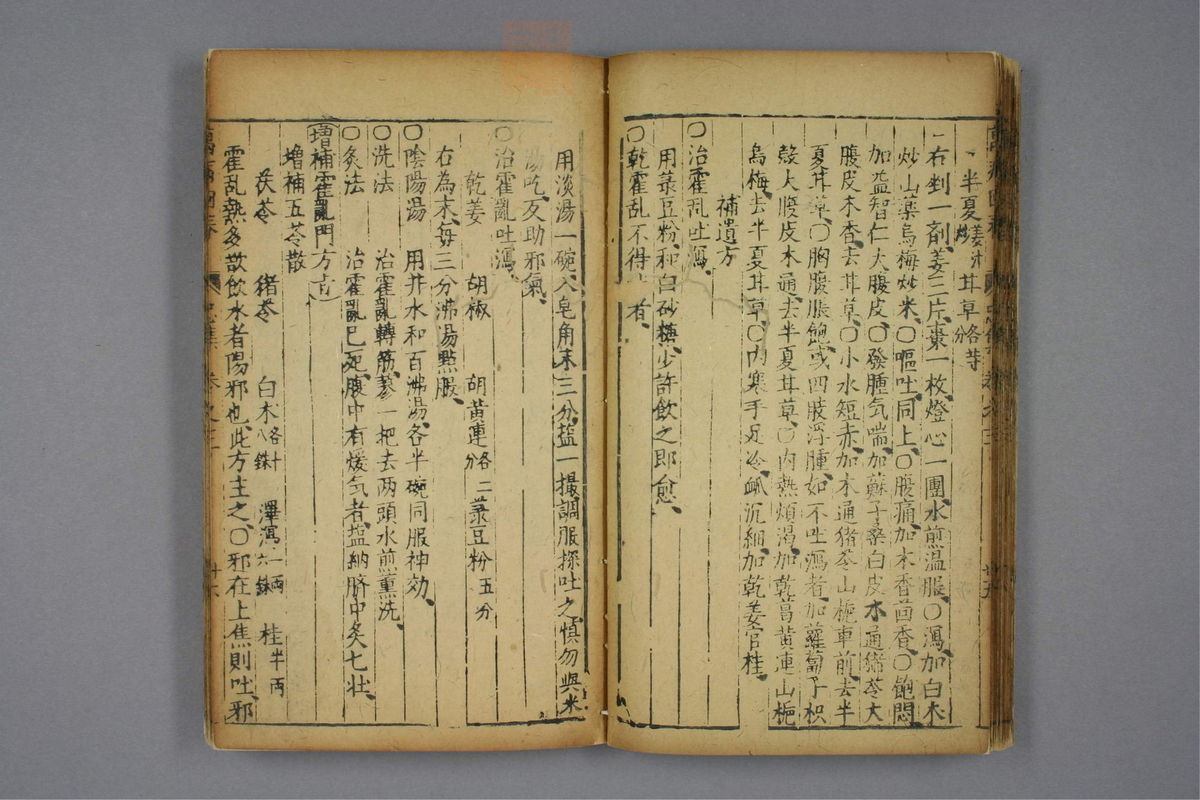 半夏姜汁炒 甘草各等分
右剉一剤姜三片棗一枚燈心一團水煎温服○瀉加白朮
炒山藥烏梅炒米○嘔吐同上○腹痛加木香茴香○飽悶
加益智仁大腹皮○發腫気喘加蘇子桑白皮木通猪苓大
腹皮木香去甘草○小水短赤加木通猪苓山梔車前去半
夏甘草○胸腹脹飽或四肢浮腫如不吐瀉者加蘿蔔子枳
殼大腹皮木通去半夏甘草○内熱煩渴加乾葛黄連山梔
烏梅去半夏甘草○内寒手足冷脉沉細加乾姜官桂
補遺方
○治霍乱吐瀉
用菉豆粉和白砂糖少許飲之即愈
○乾霍乱不得 者
用淡湯一碗入皂角末三分塩一撮調服探吐之慎勿與米
湯吃反助邪氣
○治霍亂吐瀉
乾姜 胡椒 胡黄連各二分 菉豆粉五分
右為末毎三分沸湯點服
○陰陽湯 用井水和百沸湯各半碗同服神効
○洗法 治霍亂轉筋蓼一把去两頭水煎薰洗
○灸法 治霍亂已死腹中有煖気者塩納臍中灸七壮
増補霍亂門方
増補五苓散
茯苓 猪苓 白朮各十八銖 澤瀉一両六銖 桂半両
霍乱熱多欲飲水者陽邪也此方主之○邪在上焦則吐邪